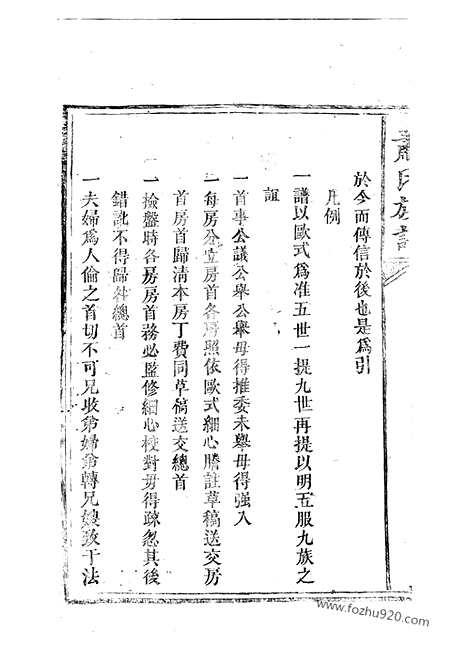 氏族譜
於今而傳信於後也是為引
凡例
一譜以歐式為准五世一提九世再提以明五服九族之
誼
一首事公議公舉公舉毋得推委未舉毋得强入
一每房公立房首各房照依歐式細心謄註草稿送交房
首房首歸清本房丁費同草稿送交總首
一撿盤時各房房首務必監修細心校對毋得疎忽其後
錯訛不得歸咎總首
一夫婦為人倫之首切不可兄收弟婦弟轉兄嫂致干法
www.fozhu920.com